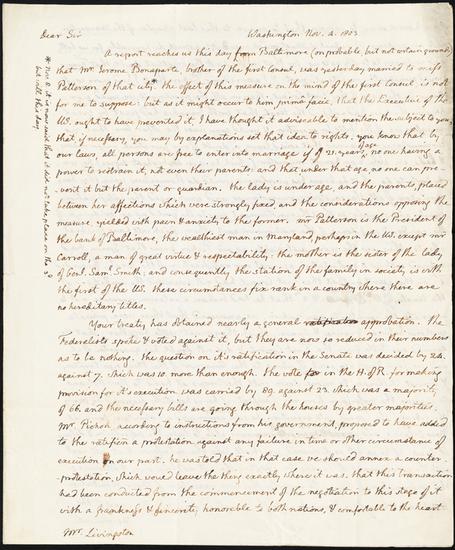 Dear Sir
Washington Nov. 4. 1803
A report reaches us this day from Baltimore (on probable, but not certain grounds)
that Mr. Jerome Bonaparte, brother of the first Consul, was yesterday married to miss
Patterson of that city.* the effect of this measure on the mind of the first Consul, is not
for me to suppose: but as it might occur to him, primâ facie, that the Executive of the
US. ought to have prevented it, I have thought it adviseable to mention the subject to you,
that if necessary, you may by explanations set that idea to rights. you know that by
our laws, all persons are free to enter into marriage if of 21. years of age, no one having a
power to restrain it, not even their parents: and that under that age no one can pre-
-vent it but the parent or guardian. the lady is under age, and the parents, placed
between her affections which were strongly fixed, and the considerations opposing the
measure, yielded with pain & anxiety to the former. mr Patterson is the President of
the bank of Baltimore, the wealthiest man in Maryland, perhaps in the US. except mr
Carroll, a man of great virtue & respectability: the mother is the sister of the lady
of Genl. Saml. Smith; and consequently the station of the family in society, is with
the first of the US. these circumstances fix rank in a country where there are
no hereditary titles.
Your treaty has obtained nearly a general ratification approbation. the
Federalists spoke & voted against it, but they are now so reduced in their numbers
as to be nothing. the question on it's ratification in the Senate was decided by 24.
against 7. which was 10. more than enough. the vote for in the H. of R. for making
provision for it's execution was carried by 89. against 23. which was a majority
of 66. and the necessary bills are going through the houses by greater majorities.
Mr. Pichon according to instructions from his government, proposed to have added
to the ratificn a protestation against any failure in time or other circumstance of
execution on our part. he was told that in that case we should annex a counter
-protestation, which would leave the thing exactly where it was. that this transaction
had been conducted from the commencement of the negotiation to this stage of it
with a frankness & sincerity honorable to both nations, & comfortable to the heart
Mr. Livingston
* Nov. 8. it is now said that it did not take place on the 3d
but will this day